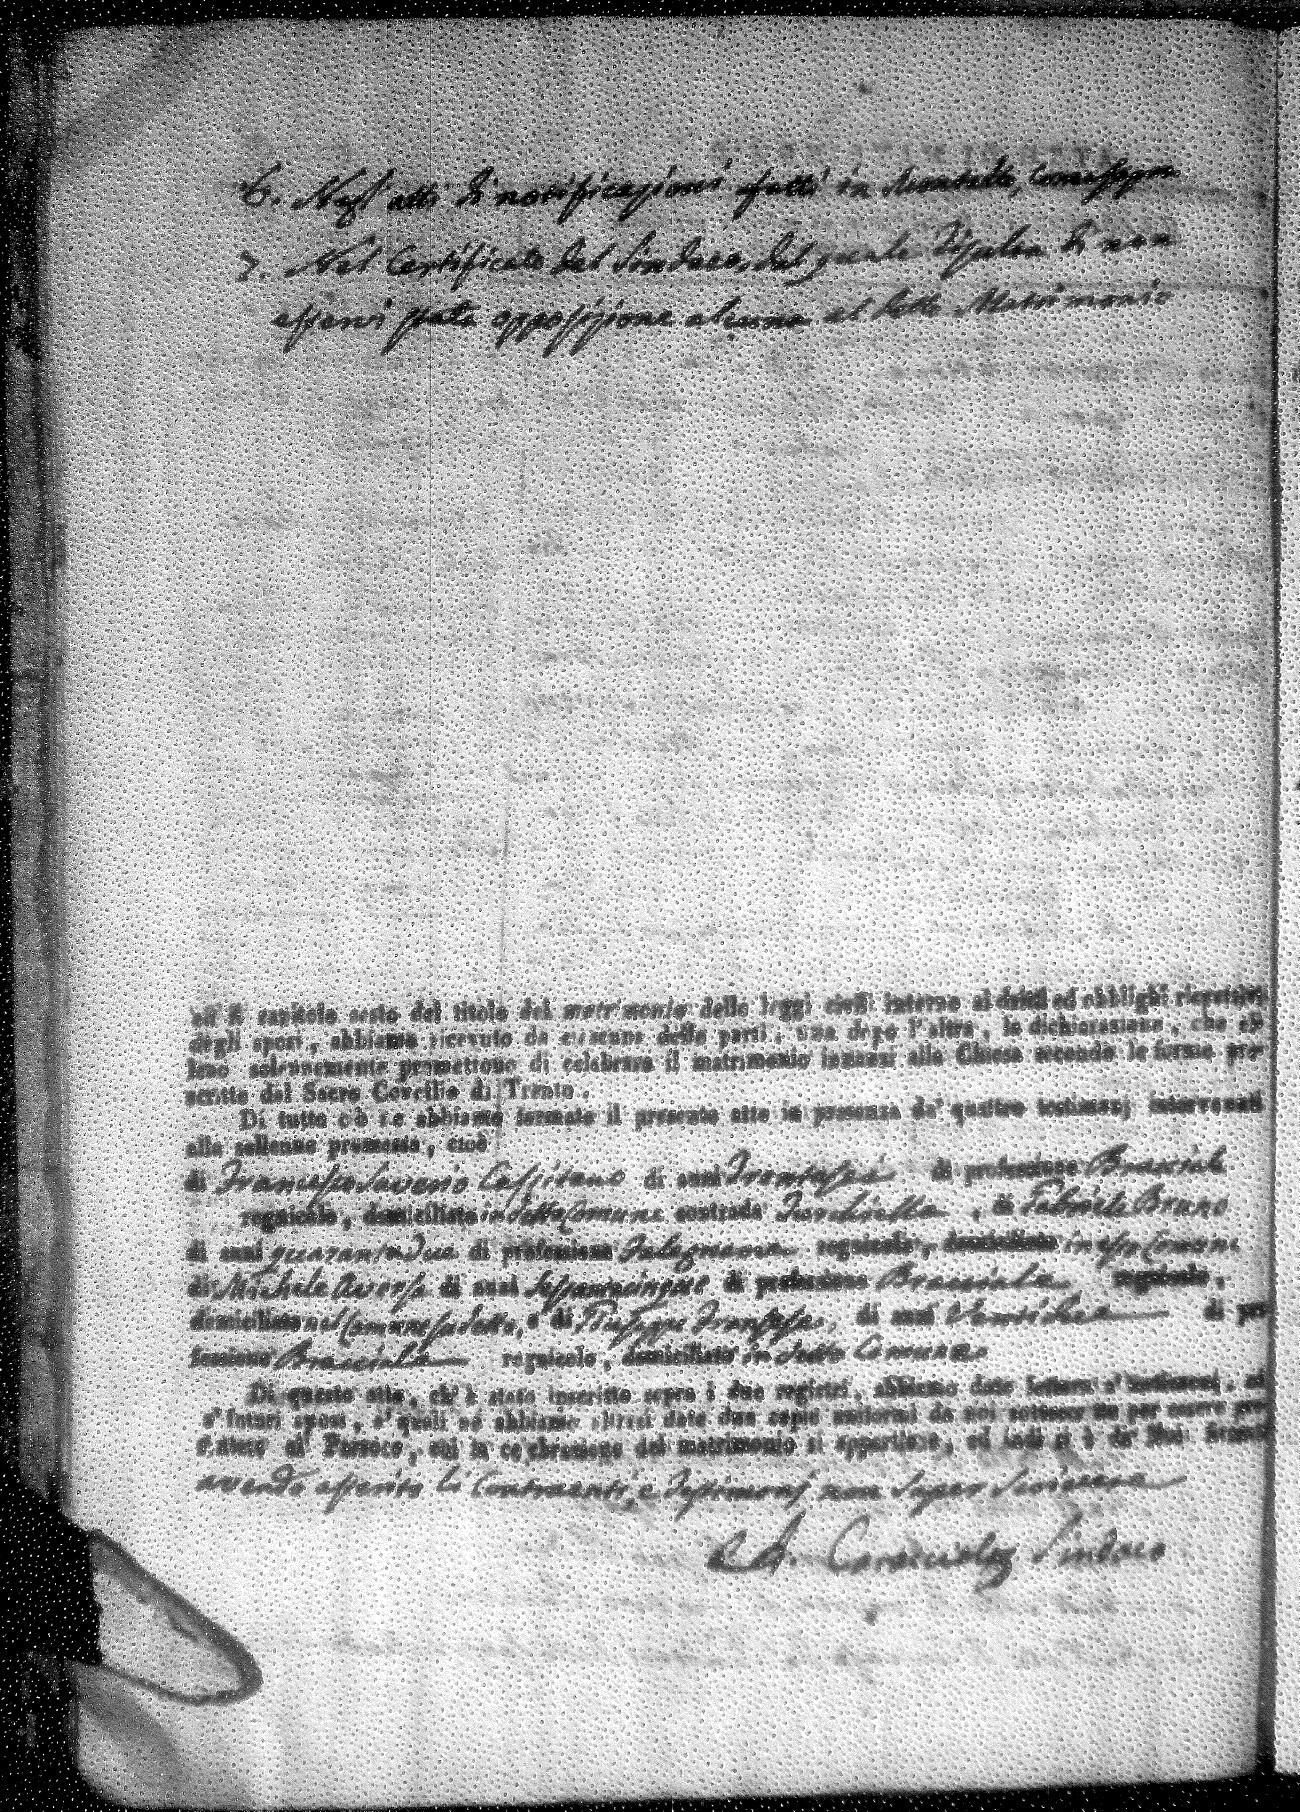 6. Negl' atti di notificazioni fatti in
7. Nel Certificato del Sindaco, dal quale di non
esservi stata opposizione alcuna al detto Matrimonio
ed il capitolo sesto del titolo del matrimonio delle leggi civili intorno ai dritti ed obblighi rispettivi
degli sposi, abbiamo ricevuto da ciascuna delle parti, una dopo l'altra, la dichiarazione, che el-
leno solennemente promettono di celebrare il matrimonio innanzi alla Chiesa secondo le forme pre-
scritte dal Sacro Concilio di Trento.
Di tutto ciò ne abbiamo formato il presente atto in presenza de' quattro testimonj intervenuti
alla sollenne promessa, cioè
di Francesco Saverio di anni Trentasei di professione Bracciale
regnicolo, domiciliato in detto Comune contrada , di Fabriele Bruno
di anni quarantadue di professione Falegname regnicolo, domiciliato in esso Comune
di Michele Aversa di anni Sessantacinque di professione Bracciale regnicolo,
domiciliato nel Comune sudetto, e di Giuseppe di anni di pro-
fessione Bracciale regnicolo, domiciliato in detto Comune
Di questo atto, ch'è stato inscritto sopra i due registri, abbiamo dato lettura a' testimonj, ed
a' futuri sposi, a' quali ne abbiamo altresì date due copie uniformi da noi sottoscritte per essere pre-
sentate al Parroco, cui la celebrazione del matrimonio si appartiene, ed indi si è da Noi firmato
avendo asserito li Contraenti, e Testimonj non saper scrivere
Sindaco